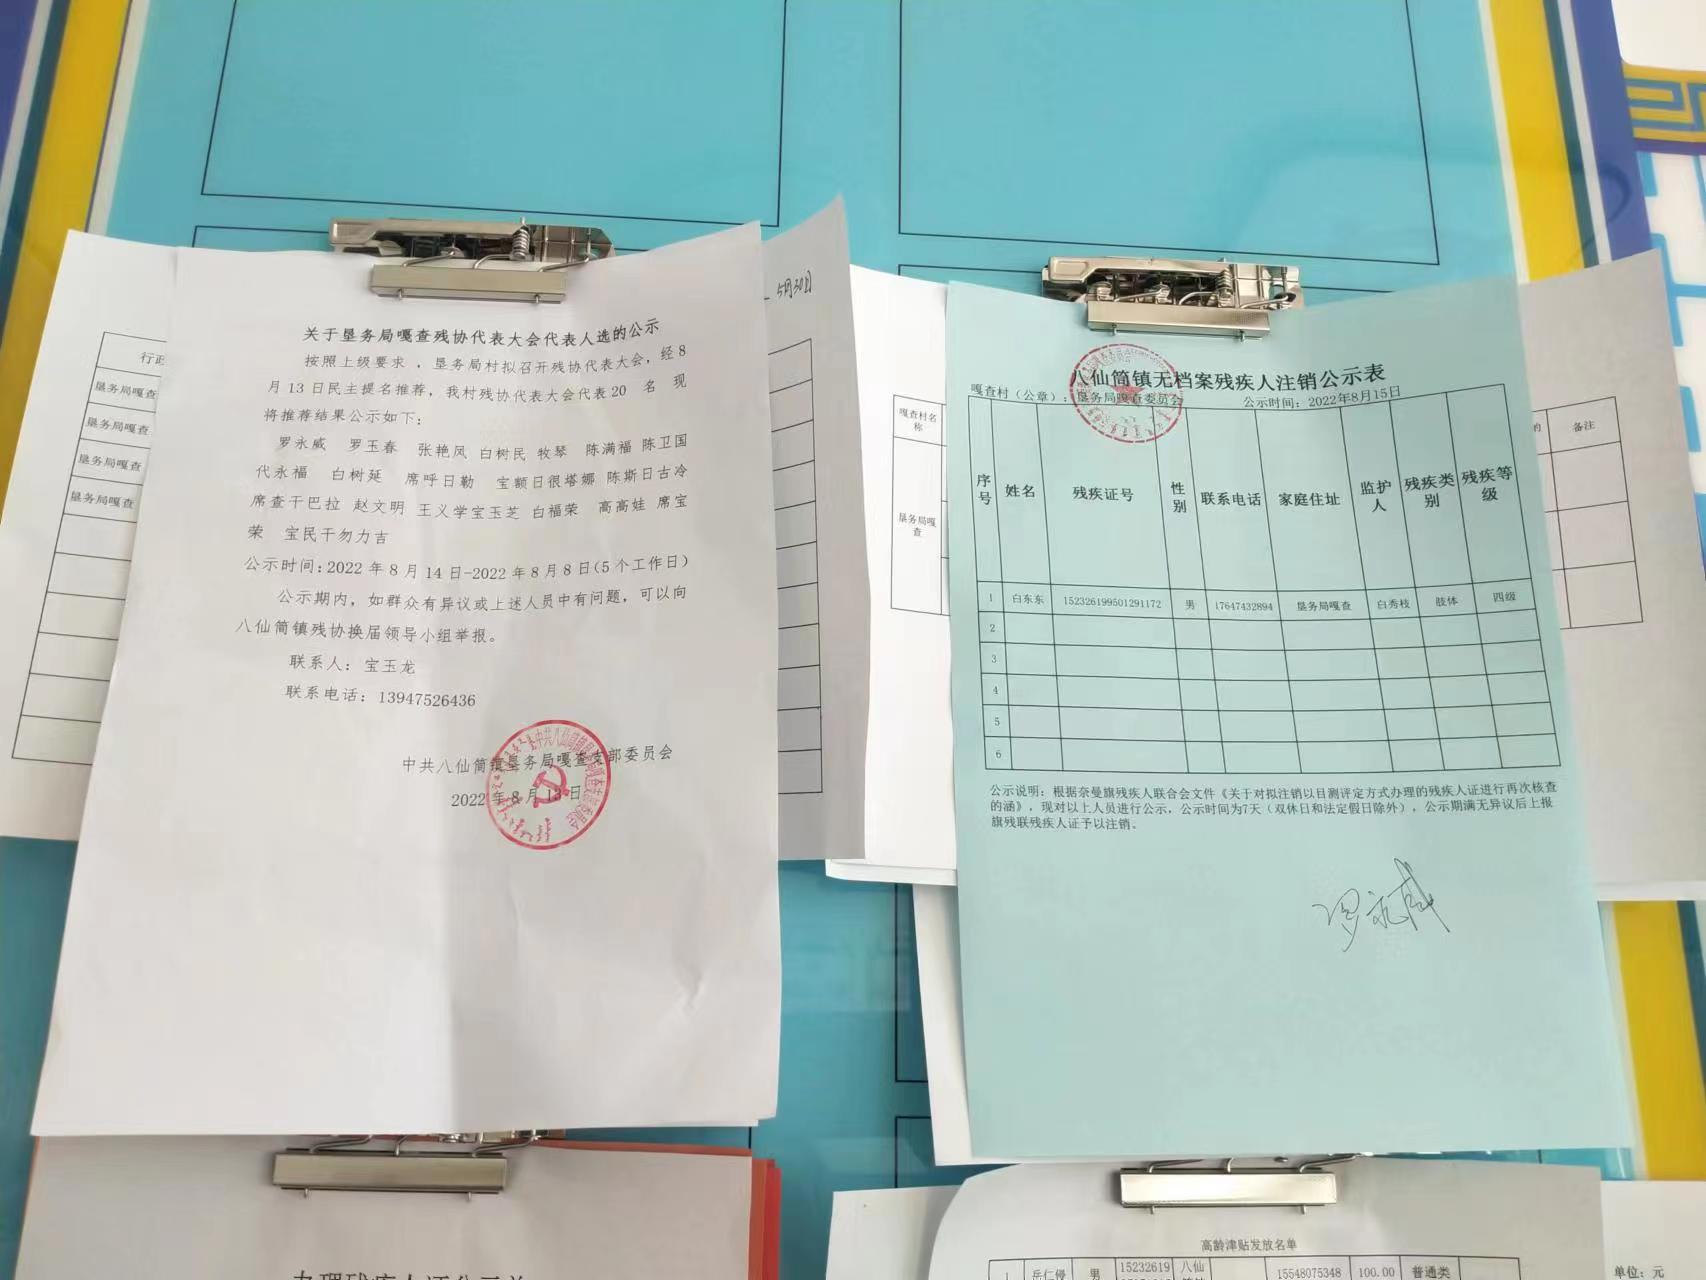 5月30日
关于垦务局嘎查残协代表大会代表人选的公示
按照上级要求 ，垦务局村拟召开残协代表大会，经8
月13日民主提名推荐，我村残协代表大会代表20 名 现
将推荐结果公示如下：
罗永威 罗玉春 张艳凤 白树民 牧琴 陈满福 陈卫国
代永福 白树延 席呼日勒 宝额日很塔娜 陈斯日古冷
席查干巴拉 赵文明 王义学宝玉芝 白福荣 高高娃 席宝
荣 宝民干勿力吉
公示时间：2022年8月14日-2022年8月8日（5个工作日）
公示期内，如群众有异议或上述人员中有问题，可以向
八仙筒镇残协换届领导小组举报。
联系人：宝玉龙
联系电话：13947526436
中共八仙筒镇垦务局嘎查支部委员会
2022年8月13日
行政
垦务局嘎查
垦务局嘎查
垦务局嘎查
垦务局嘎查
八仙筒镇无档案残疾人注销公示表
嘎查村（公章）：垦务局嘎查委员会 公示时间：2022年8月15日
序号 姓名 残疾证号 性别 联系电话 家庭住址 监护人 残疾类别 残疾等级
1 白东东 152326199501291172 男 17647432894 垦务局嘎查 白秀枝 肢体 四级
2
3
4
5
6
公示说明：根据奈曼旗残疾人联合会文件《关于对拟注销以目测评定方式办理的残疾人证进行再次核查
的涵》，现对以上人员进行公示，公示时间为7天（双休日和法定假日除外），公示期满无异议后上报
旗残联残疾人证予以注销。
罗永威
嘎查村名称
垦务局嘎查
的 备注
高龄津贴发放名单
单位：元
1 岳仁侵 男 15232619 八仙 15548075348 100.00 普通类